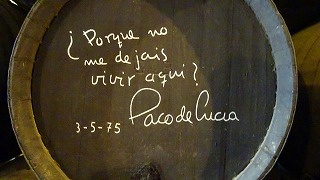 ¿Porque no
me dejais
vivir aqui?
3-5-75 Paco de Lucia